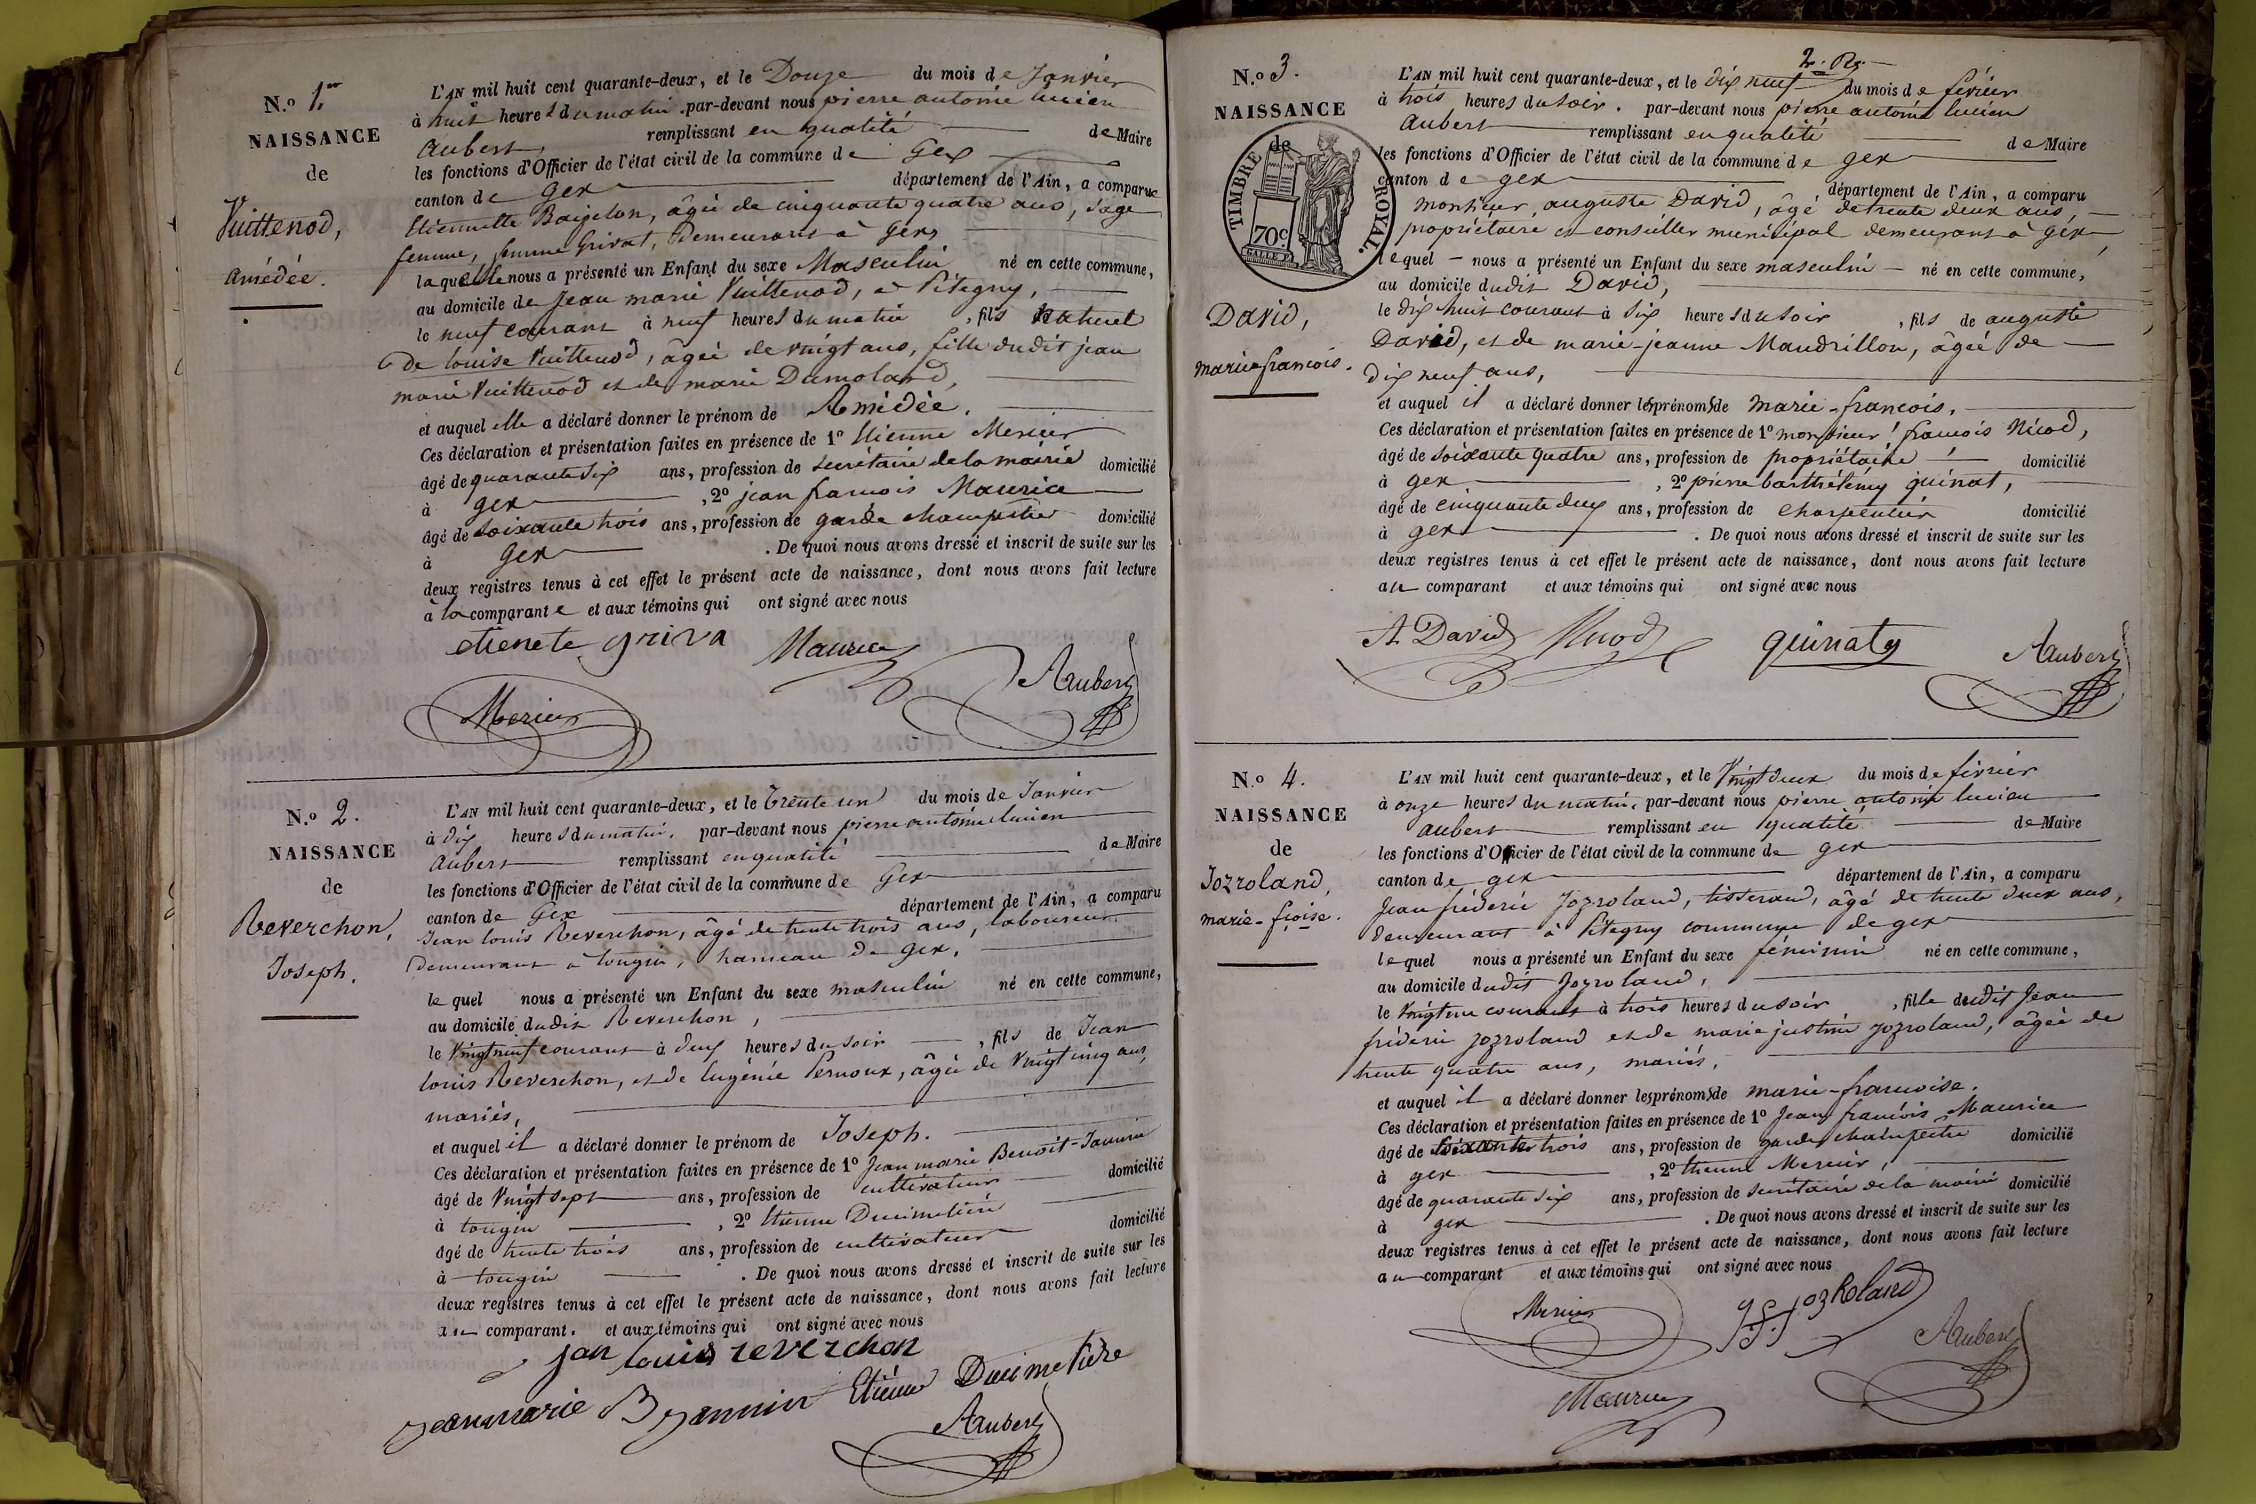 N.º 1.er
NAISSANCE
de
Vuittenod,
Amédée.
L'AN mil huit cent quarante-deux, et le Douze du mois de Janvier
à huit heures du matin. par-devant nous pierre antoine lucien
Aubert remplissant en qualité de Maire
les fonctions d'Officier de l'état civil de la commune de Gex
canton de Gex département de l'Ain, a comparue
Etiennette âgée de cinquante quatre ans, sage
femme, femme Grivat, Demeurant à Gex,
laquelle nous a présenté un Enfant du sexe Masculin né en cette commune,
au domicile de Jean marie Vuittenod, à Pitegny,
le neuf courant à neuf heures du matin, fils naturel
de louise Vuittenod, âgée de vingt ans, fille dudit jean
marie Vuittenod et de marie Dumoland,
et auquel elle a déclaré donner le prénom de Amédée.
Ces déclaration et présentation faites en présence de 1º Etienne Mercier
âgé de quarante six ans, profession de secrétaire de la mairie domicilié
à gex, 2º jean francois Maurice
âgé de soixante trois ans, profession de garde champetre domicilié
à Gex. De quoi nous avons dressé et inscrit de suite sur les
deux registres tenus à cet effet le présent acte de naissance, dont nous avons fait lecture
à la comparante et aux témoins qui ont signé avec nous
etienete griva Maurice
Aubert
Mercier
N.º 2.
NAISSANCE
de
Reverchon,
Joseph.
L'AN mil huit cent quarante-deux, et le trente un du mois de Janvier
à dix heures du matin. par-devant nous pierre antoine lucien
Aubert remplissant en qualité de Maire
les fonctions d'Officier de l'état civil de la commune de Gex
canton de Gex département de l'Ain, a comparu
Jean louis Reverchon, âgé de trente trois ans, laboureur
demeurant à tougin, hameau de gex.
lequel nous a présenté un Enfant du sexe masculin né en cette commune,
au domicile dudit Reverchon,
le Vingt neuf courant à deux heures du soir, fils de Jean
louis Reverchon, et de Eugénie Pernoux, âgée de Vingt cinq ans,
mariés,
et auquel il a déclaré donner le prénom de Joseph.
Ces déclaration et présentation faites en présence de 1º Jean marie Benoit-Jannin
âgé de Vingt sept ans, profession de cultivateur domicilié
à tougin, 2º Etienne Ducimetière
âgé de trente trois ans, profession de cultivateur domicilié
à tougin. De quoi nous avons dressé et inscrit de suite sur les
deux registres tenus à cet effet le présent acte de naissance, dont nous avons fait lecture
au comparant. et aux témoins qui ont signé avec nous
jan louis reverchon
jeanmarie B jannin Etienne Ducimetière
Aubert
2.
N.º 3.
NAISSANCE
de
TIMBRE ROYAL.
70c
David,
marie francois.
L'AN mil huit cent quarante-deux, et le dix neuf du mois de février
à trois heures du soir. par-devant nous pierre antoine lucien
Aubert remplissant en qualité de Maire
les fonctions d'Officier de l'état civil de la commune de gex
canton de gex département de l'Ain, a comparu
monsieur, auguste David, âgé de trente deux ans,
propriétaire et conseiller municipal demeurant à gex
lequel nous a présenté un Enfant du sexe masculin né en cette commune,
au domicile dudit David,
le dix huit courant à six heures du soir, fils de auguste
David, et de marie-jeanne Mandrillon, âgée de
dix neuf ans,
et auquel il a déclaré donner les prénoms de marie-francois.
Ces déclaration et présentation faites en présence de 1º monsieur francois Nicod,
âgé de soixante quatre ans, profession de propriétaire domicilié
à gex, 2º pierre barthélémy quinat,
âgé de cinquante deux ans, profession de charpentier domicilié
à gex. De quoi nous avons dressé et inscrit de suite sur les
deux registres tenus à cet effet le présent acte de naissance, dont nous avons fait lecture
au comparant et aux témoins qui ont signé avec nous
A David Nicod quinat Aubert
N.º 4.
NAISSANCE
de
Jozroland,
marie-fçoise.
L'AN mil huit cent quarante-deux, et le Vingt deux du mois de février
à onze heures du matin. par-devant nous pierre antoine lucien
Aubert remplissant en qualité de Maire
les fonctions d'Officier de l'état civil de la commune de gex
canton de gex département de l'Ain, a comparu
Jean fréderic Jozroland, tisserand, âgé de trente deux ans,
demeurant à Pitegny commune de gex
lequel nous a présenté un Enfant du sexe féminin né en cette commune,
au domicile dudit Jozroland,
le Vingt un courant à trois heures du soir, fille dudit Jean
fréderic jozroland et de marie justine jozroland, âgée de
trente quatre ans, mariés,
et auquel il a déclaré donner les prénoms de marie-francoise.
Ces déclaration et présentation faites en présence de 1º Jean francois Maurice
âgé de soixante trois ans, profession de garde champetre domicilié
à gex, 2º Etienne Mercier,
âgé de quarante six ans, profession de secrétaire de la mairie domicilié
à gex. De quoi nous avons dressé et inscrit de suite sur les
deux registres tenus à cet effet le présent acte de naissance, dont nous avons fait lecture
au comparant et aux témoins qui ont signé avec nous
Mercier jozRoland
Aubert
Maurice